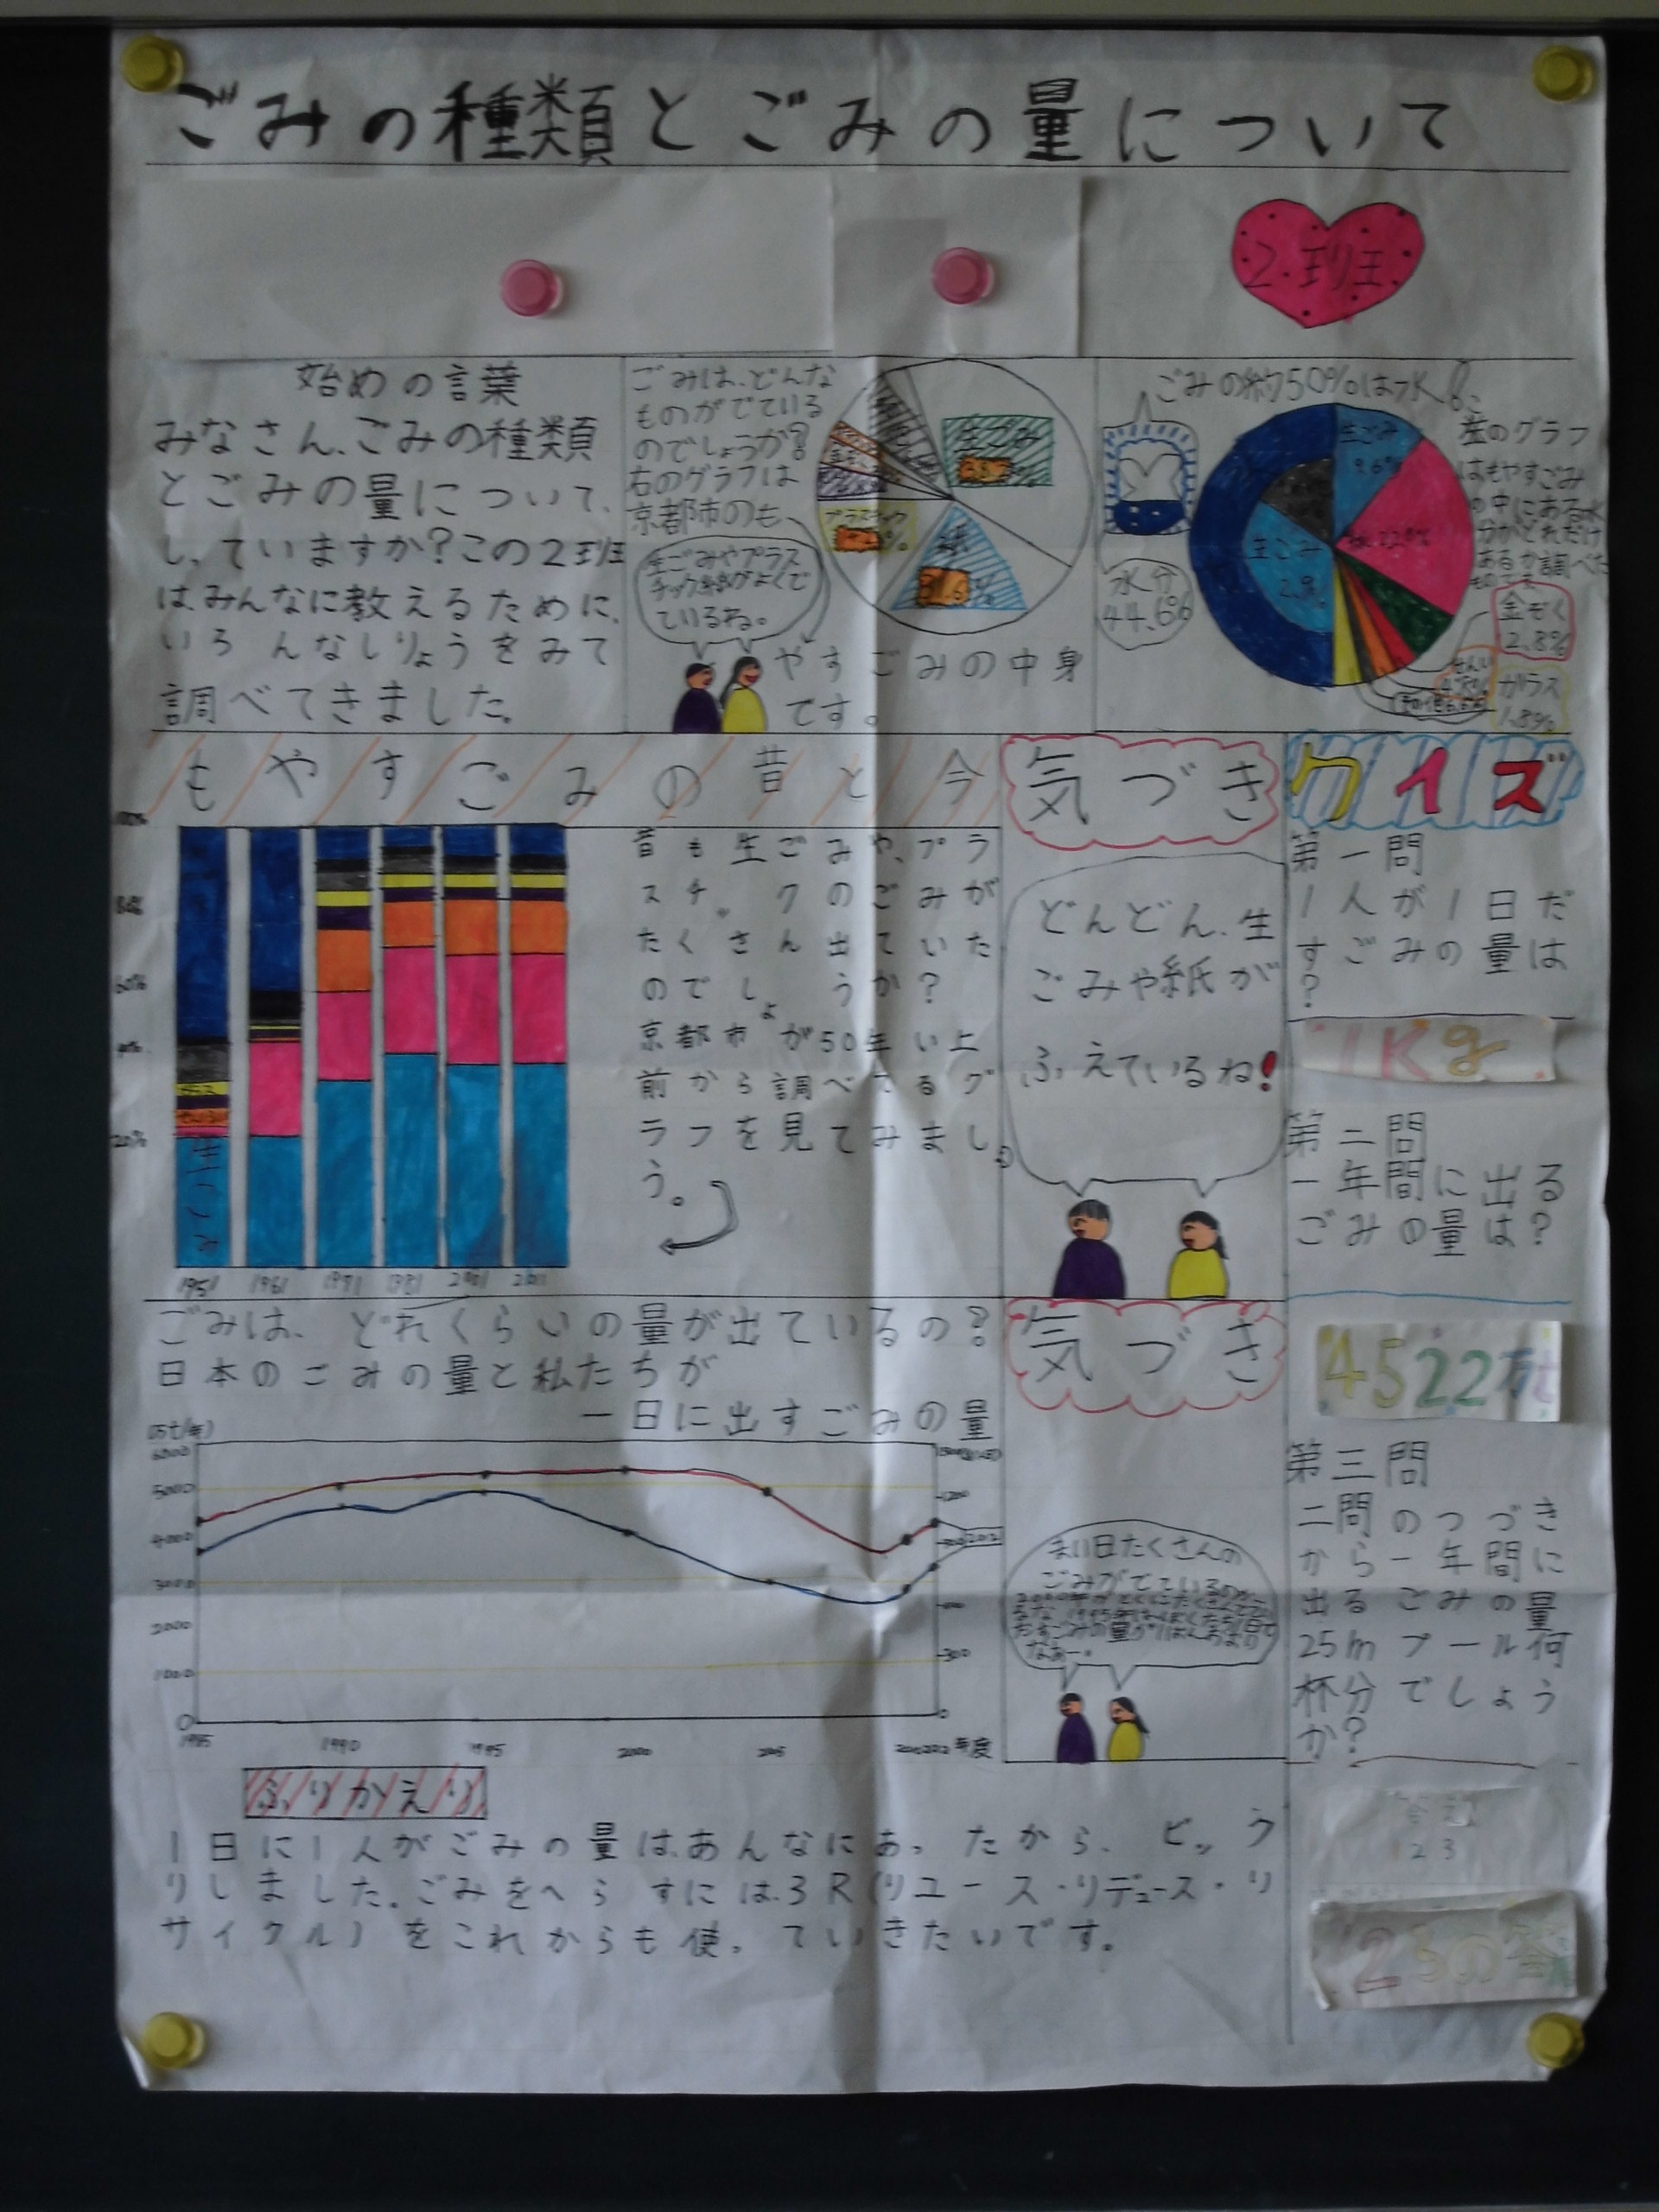 ごみの種類とごみの量について
2班
始めの言葉
みなさん、ごみの種類
とごみの量について、
しっていますか?この2班
は、みんなに教えるために、
いろんなしりょうをみて
調べてきました。
ごみは、どんな
ものがでている
のでしょうか?
右のグラフは
京都市のも
やすごみの中身
です。
生ごみやプラス
チック、紙がよくで
ているね。
生ごみ
紙
プラスチック
ごみの約50%は水
左のグラフ
はもやすごみ
の中にある水
分がどれだけ
あるか調べた
ものです
水分
44.6%
生ごみ
生ごみ
金ぞく
2.8%
ガラス
1.8%
もやすごみの昔と今
100%
80%
60%
40%
20%
生ごみ
1951 1961 1971 1981 2001 2011
昔も生ごみや、プラ
スチックのごみが
たくさん出ていた
のでしょうか?
京都市が50年い上
前から調べてるグ
ラフを見てみましょ
う。
気づき
どんどん、生
ごみや紙が
ふえているね!
クイズ
第一問
1人が1日だ
すごみの量は
?
1Kg
第二問
一年間に出る
ごみの量は?
4522万t
第三問
二問のつづき
から一年間に
出るごみの量
25mプール何
杯分でしょう
か?
123
23の答
ごみは、どれくらいの量が出ているの?
日本のごみの量と私たちが
一日に出すごみの量
6000
5000
4000
3000
2000
1000
0
1200
300
0
1985 1990 1995 2000 2005 年度
気づき
まい日たくさんの
ごみがでているのね
なぁー。
ふりかえり
1日に1人がごみの量は、あんなにあったから、ビック
リしました。ごみをへらすには、3R(リユース・リデュース・リ
サイクル)をこれからも使っていきたいです。